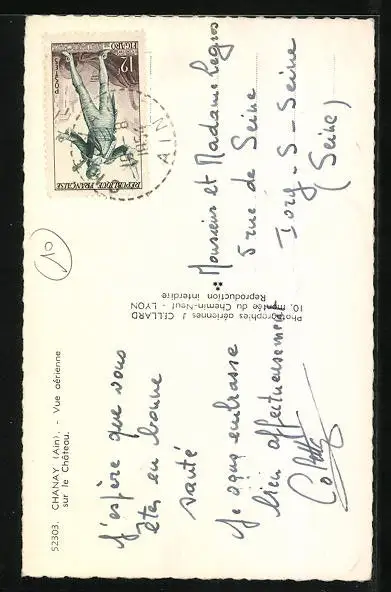 52303. CHANAY (Ain). - Vue aérienne
sur le Château.
J'espère que vous
êtes en bonne
santé
Je vous embrasse
bien affectueusement
Colette
Photographies aériennes J. CELLARD
10, montée du Chemin-Neuf - LYON
Reproduction interdite
Monsieur et Madame Legros
5 rue de Seine
Ivry-S-Seine
(Seine)
12
FIGARO
RÉPUBLIQUE FRANÇAISE
1954
AIN
10